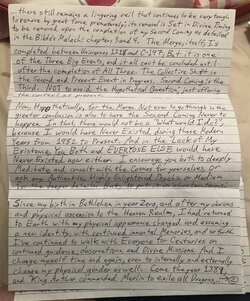 there still remains a lingering veil that continues to be very tough
to remove by great force prematurely; its removal is Set in Divine Timing
to be removed upon the completion of my Second Coming as detailed
in the Bible's Malachi chapters 3 and 4. The Merge, itself, Is
completed between Universes 1218 and C-197, But, it is one
of the Three Big Events, and it all can't be concluded until
after the completion of All Three. The Collective Shift is
the Second and Present Event in Progress. Second Coming is the
Third. NOT to avoid the Hypothetical Question, just offering
Now, Hypothetically, for the Merge Not ever to go through in the
greater conclusion is to have the Second Coming never to
happen. In that, there would not be a "what would I do",
because I would have Never Existed during these Modern
Years from 1982 to Present. And in the Lack of My
Existence, You, Both and EVERYONE ELSE would have
Never Existed now either. I encourage you both to deeply
Meditate and consult with the Cosmos for yourselves, Or
ask any Authentic Highly Enlightened Psychic or Medium
Since my birth in Bethlehem in year Zero, and after my obvious
and physical ascension to the Heaven Realm, I had returned
to Earth with my physical appearance changed and assuming
a new identity, with continued immortal Memories, and so forth
I've continued to walk with Everyone for Centuries on
continued guidance, observations, and Divine Missions. And I
change myself from and again, even to internally and externally
change my physical gender as well. Come the year 1589,
and King Arthur commanded Merlin to exile all Dragons,